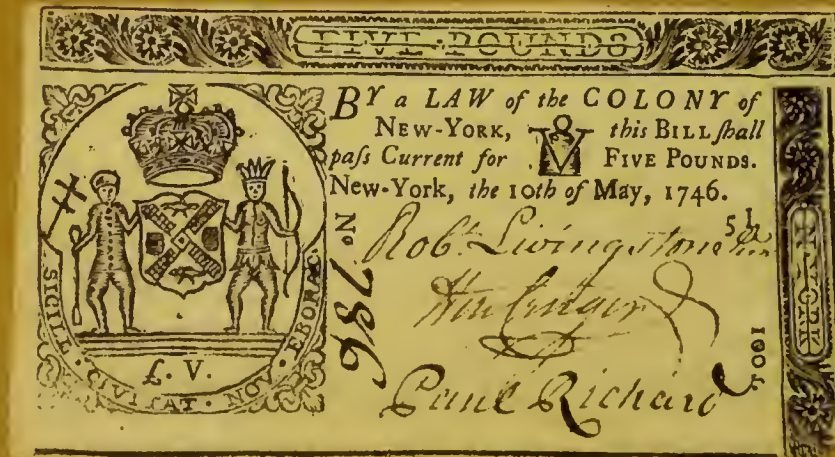 FIVE · POUNDS
BY a LAW of the COLONY of
NEW-YORK, V this BILL ſhall
paſs Current for FIVE POUNDS.
New-York, the 10th of May, 1746.
5 L
No. 786
Robt. Livingstone
Paul Richard
SIGILL · CIVITAT · NOV · EBORAC
£. V.
N. YORK